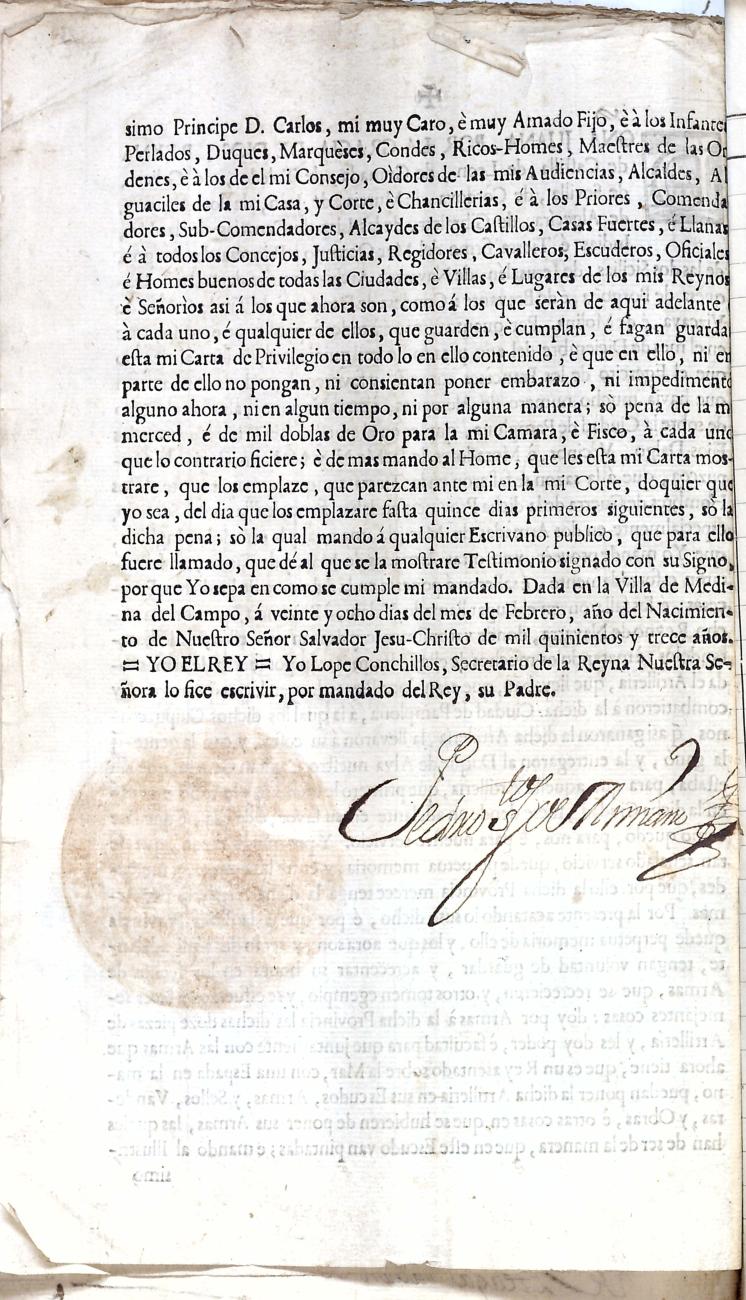 simo Principe D. Carlos, mi muy Caro, è muy Amado Fijo, è à los Infantes
Perlados, Duques, Marquèses, Condes, Ricos-Homes, Maestres de las Or
denes, è à los de el mi Consejo, Oìdores de las mis Audiencias, Alcaldes, Al
guaciles de la mi Casa, y Corte, è Chancillerias, é à los Priores, Comenda
dores, Sub-Comendadores, Alcaydes de los Castillos, Casas Fuertes, é Llanas
é à todos los Concejos, Justicias, Regidores, Cavalleros, Escuderos, Oficiales
é Homes buenos de todas las Ciudades, è Villas, é Lugares de los mis Reynos
è Señorìos asi á los que ahora son, como á los que seràn de aqui adelante
à cada uno, é qualquier de ellos, que guarden, è cumplan, é fagan guarda
esta mi Carta de Privilegio en todo lo en ello contenido, è que en ello, ni en
parte de ello no pongan, ni consientan poner embarazo, ni impedimento
alguno ahora, ni en algun tiempo, ni por alguna manera; sò pena de la m
merced, é de mil doblas de Oro para la mi Camara, è Fisco, à cada uno
que lo contrario ficiere; è de mas mando al Home, que les esta mi Carta mos-
trare, que los emplaze, que parezcan ante mi en la mi Corte, doquier que
yo sea, del dia que los emplazare fasta quince dias primeros siguientes, sò la
dicha pena; sò la qual mando á qualquier Escrivano publico, que para ello
fuere llamado, que dé al que se la mostrare Testimonio signado con su Signo,
porque Yo sepa en como se cumple mi mandado. Dada en la Villa de Medi-
na del Campo, á veinte y ocho dias del mes de Febrero, año del Nacimien-
to de Nuestro Señor Salvador Jesu-Christo de mil quinientos y trece años.
= YO EL REY = Yo Lope Conchillos, Secretario de la Reyna Nuestra Se-
ñora lo fice escrivir, por mandado del Rey, su Padre.
Pedro